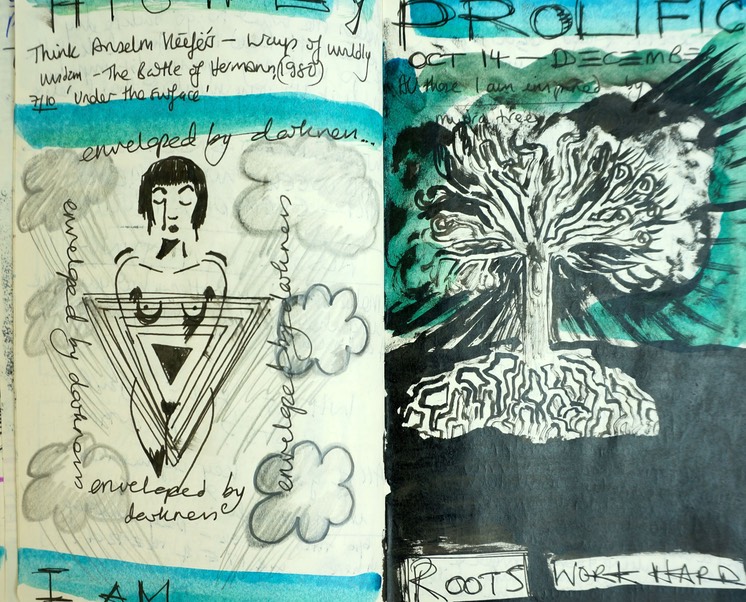 Think Anselm Kiefer's - Ways of worldly
wisdom - The Battle of Hermann (1980)
7/10 'under the surface'
enveloped by darkness...
enveloped by darkness
enveloped by darkness
enveloped by
darkness
I AM
PROLIFIC
OCT 14 - DECEMBE
All those I am inspired by
tree
ROOTS
WORK HARD